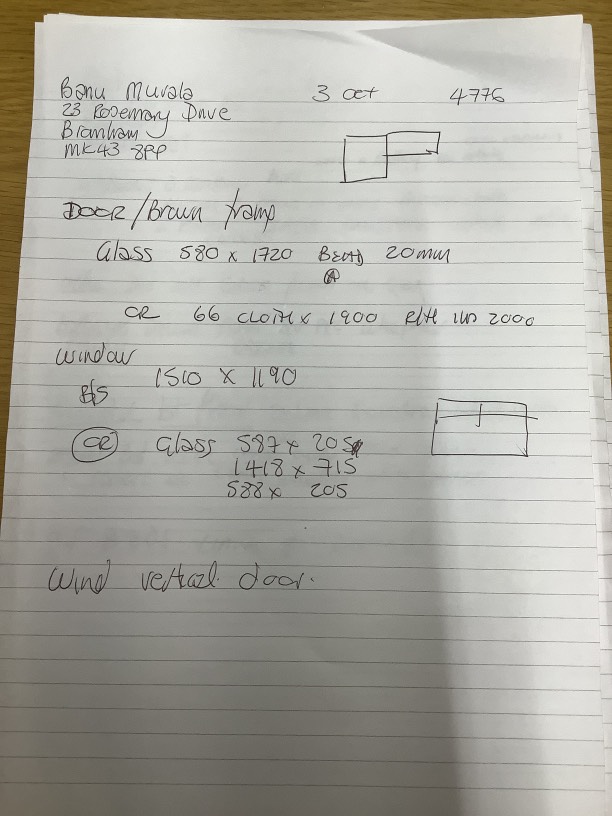 Banu Murala 3 Oct 4776
23 Rosemary Drive
Bramham
MK43 8PP
DOOR / Brown
Glass 580 x 1720 BEAD 20mm
A
OR 66 CLOTH x 1900 2000
Window
B/S 1510 x 1190
OR Glass 587 x 205
1418 x 715
588 x 205
Wind vertical door.